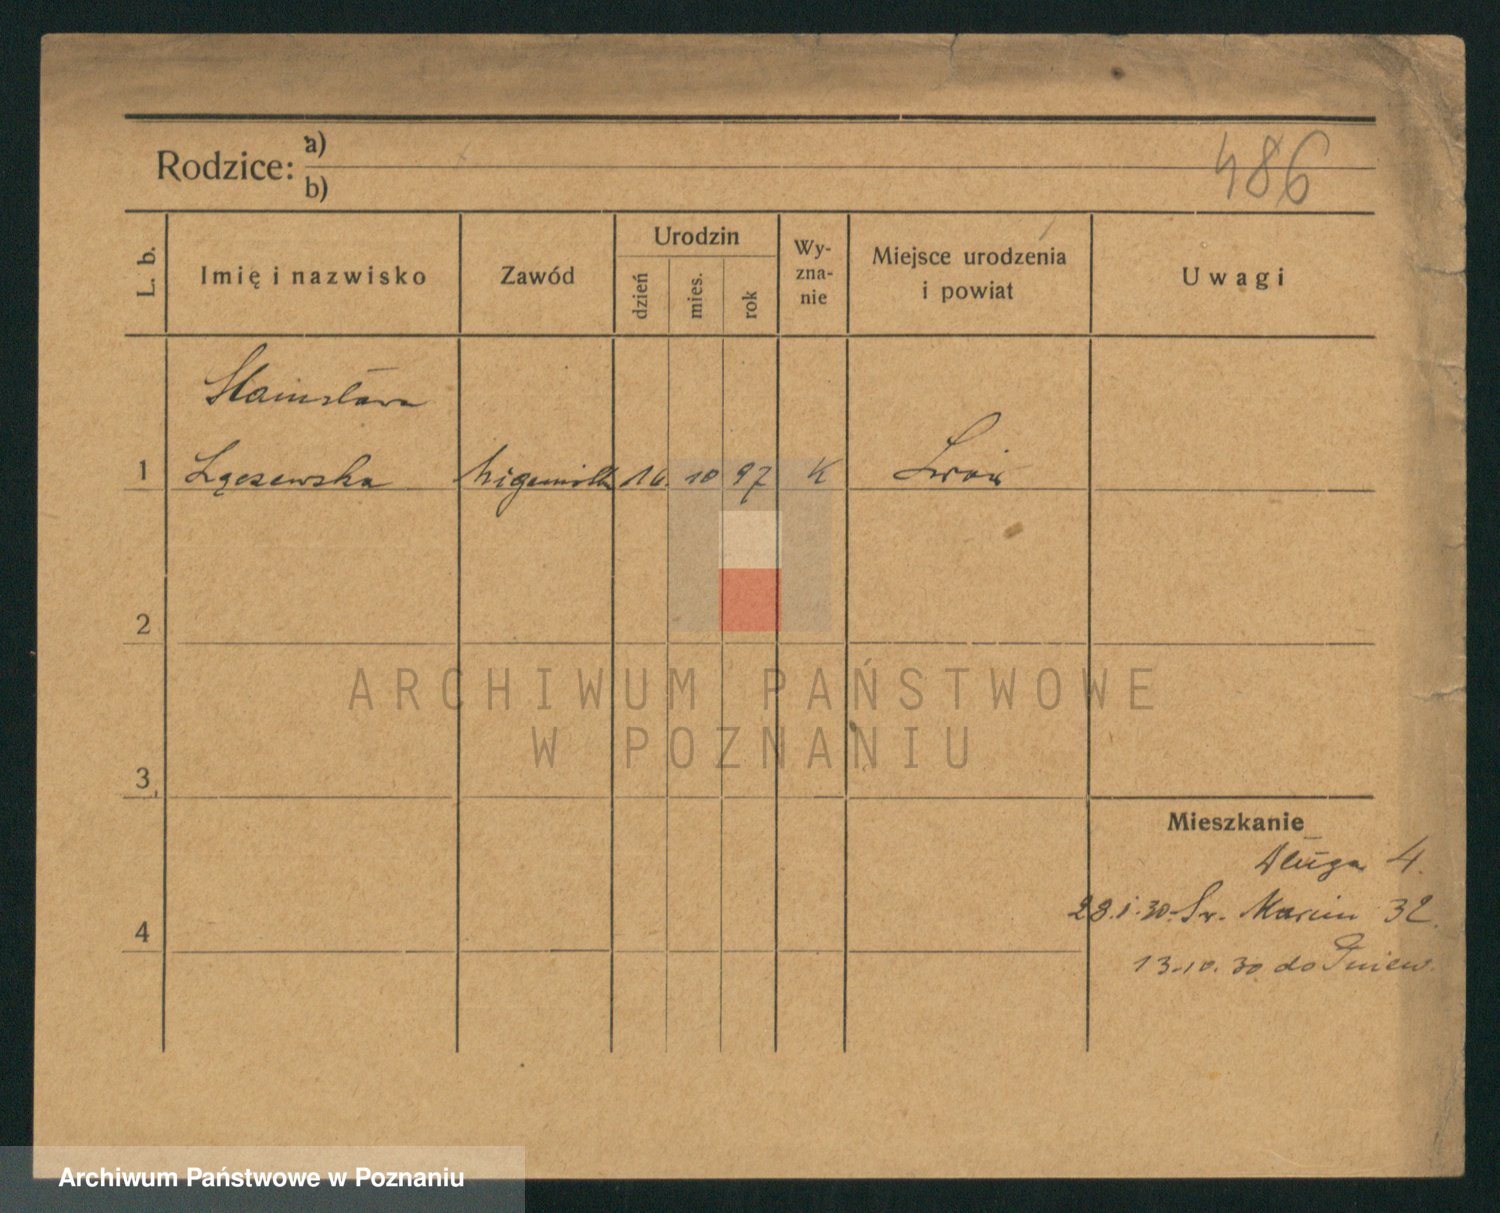 Rodzice: a)
b)
486
L. b.
Imię i nazwisko
Zawód
Urodzin
dzień
mies.
rok
Wy-
zna-
nie
Miejsce urodzenia
i powiat
Uwagi
Stanisława
1 Łączewska 10 97 K Lwów
2
3
4
Mieszkanie
Długa 4.
28.1.30. Św. Marcin 32.
13.10.30 do Gniew.
ARCHIWUM PAŃSTWOWE
W POZNANIU
Archiwum Państwowe w Poznaniu